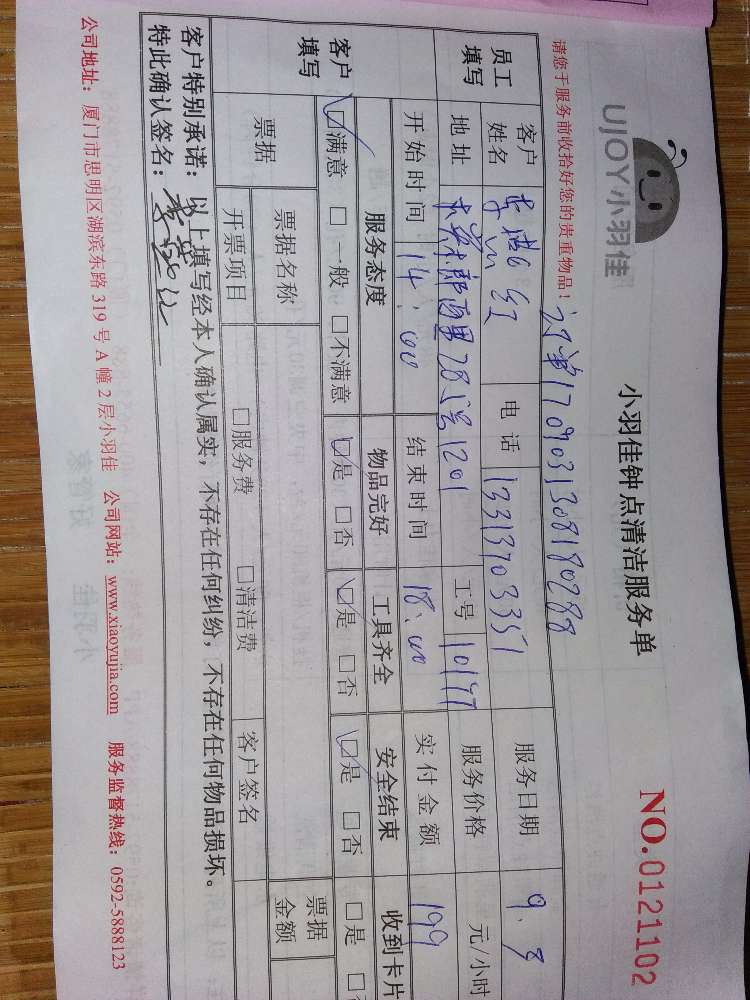 UJOY小羽佳
小羽佳钟点清洁服务单
NO.0121102
请您于服务前收拾好您的贵重物品!
1709031308180288
员工填写
客户姓名
电话 13313703351
服务日期 9.8
地址 28 1201
工号 10177
服务价格 元/小时
开始时间 14:00
结束时间 18:00
实付金额 199
客户填写
服务态度 物品完好 工具齐全 安全结束 收到卡片
☑满意 □一般 □不满意 ☑是 □否 ☑是 □否 ☑是 □否 □是
票据 票据名称 票据金额
开票项目 □服务费 □清洁费 客户签名
客户特别承诺:以上填写经本人确认属实,不存在任何纠纷,不存在任何物品损坏。
特此确认签名:
公司地址:厦门市思明区湖滨东路319号A幢2层小羽佳 公司网站:www.xiaoyujia.com 服务监督热线:0592-5888123